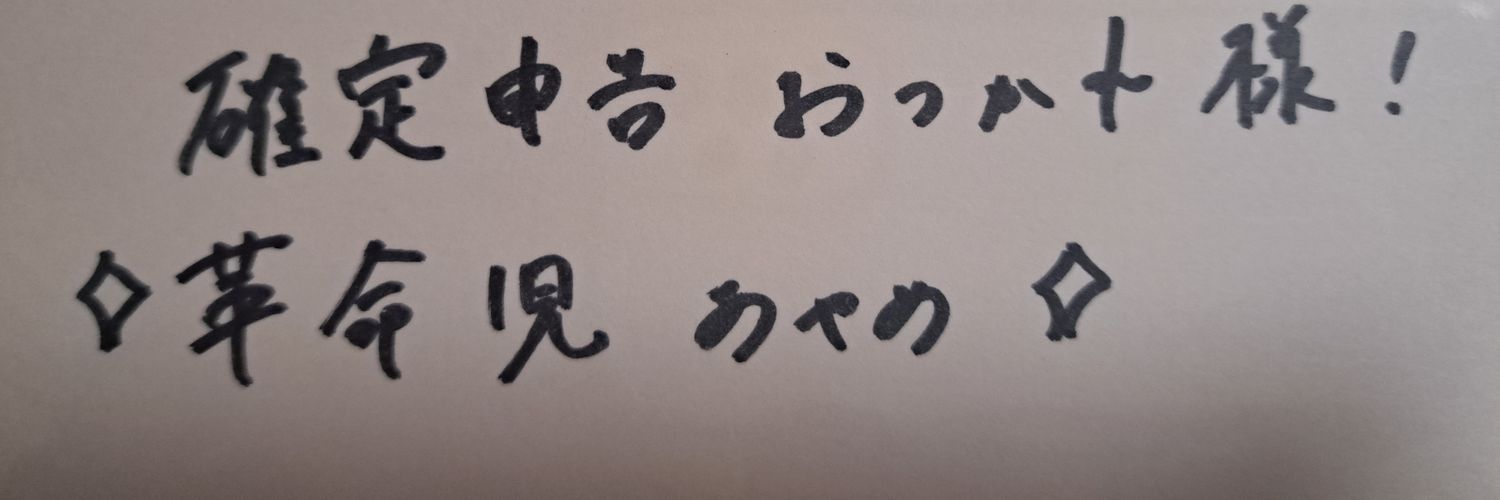 確定申告 おっかれ様!
◇革命児 あやめ◇